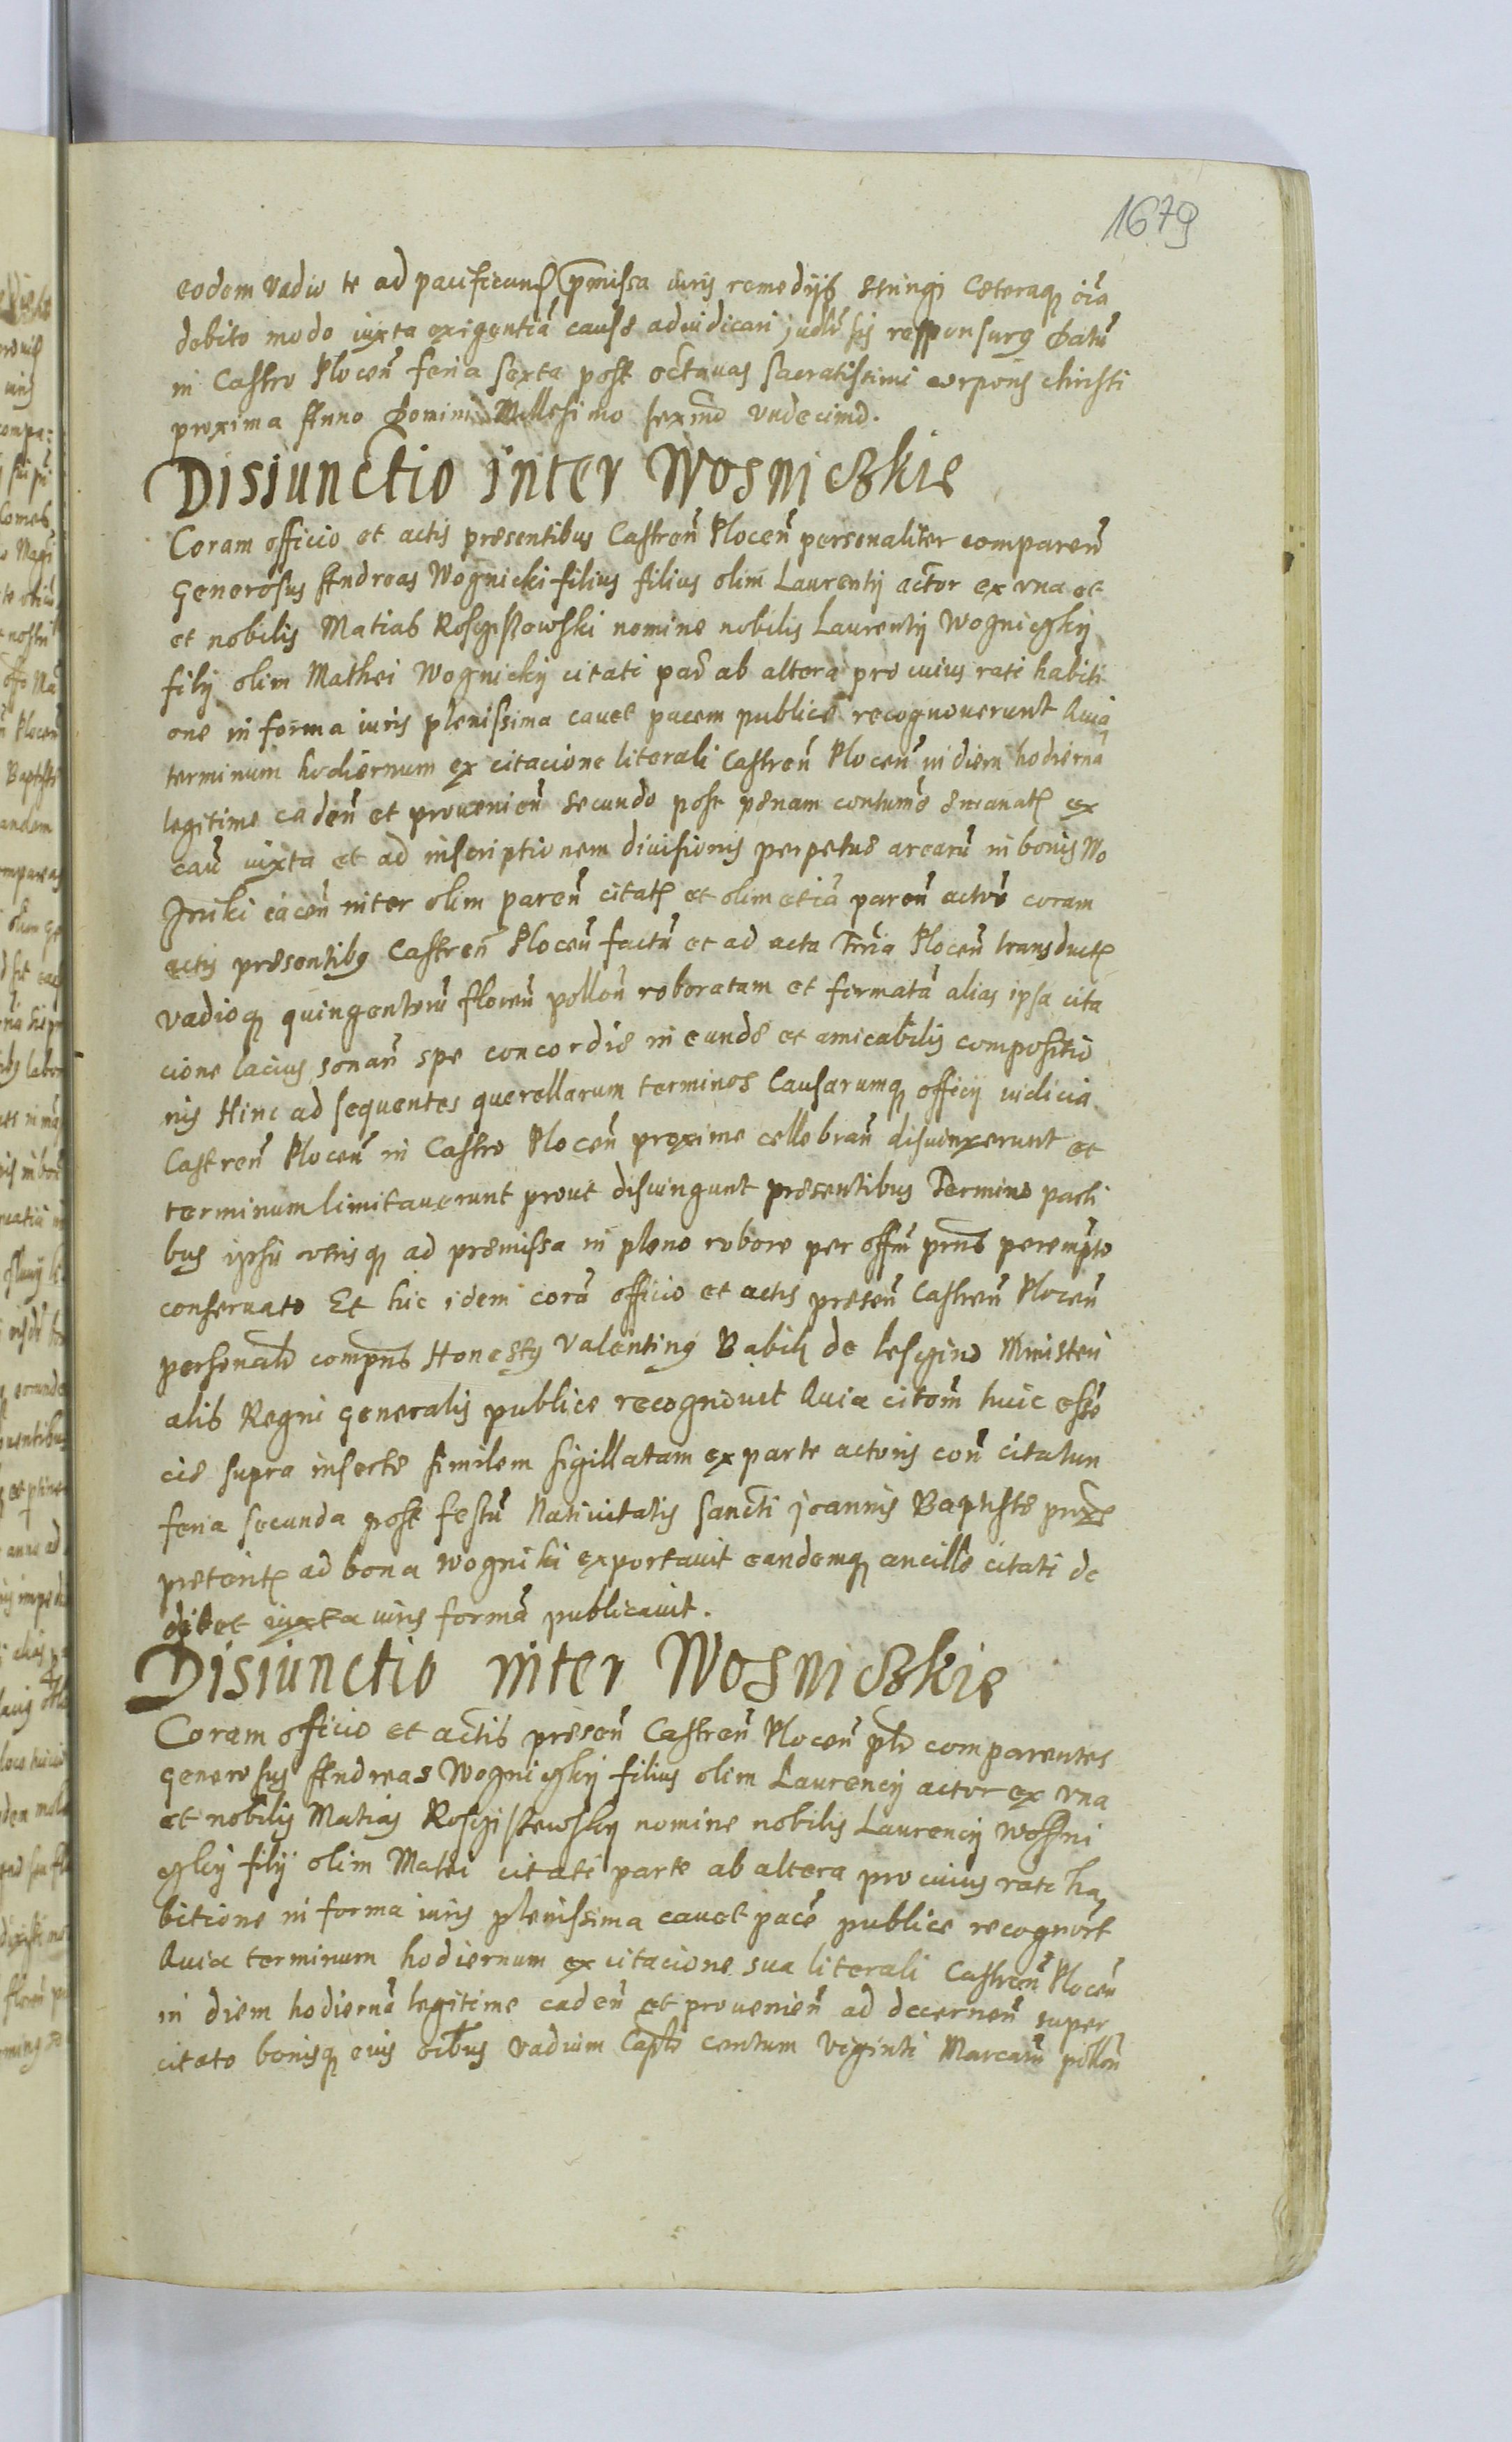 1679
eodem vadio te ad pacificand p̃missa iuris remedijs stringi Cæteraq oĩa
debito modo iuxta exigentiã causæ adiudicari responsurꝰ Datũ
in Castro Plocen̄ feria sexta post octauas sacratissimi corporis christi
proxima Anno Domini Millesimo sexmo vndecimo.
Disiunctio inter Wosniczkie
Coram officio et actis præsentibus Castren̄ Plocen̄ personaliter comparen̄
Generosus Andreas Wognicki filius filius olim Laurentij actor ex vna et
et nobilis Matias Rosciszowski nomine nobilis Laurentij Wogniczkij
filij olim Mathei Wognickij citati par̄ ab altera pro cuius rati habiti
one in forma iuris plenissima cauet pacem publicè recognouerunt Quia
terminum hodiernum ex citacione literali Castren̄ Plocen̄ in diem hodiernã
legitime caden̄ et prouenien̄ secundo post pænam contumæ emanat ex
cau̅ iuxta et ad inscriptionem diuisionis perpetuæ arearũ in bonis Wo
iacen̄ inter olim paren̄ citat et olim etiã paren̄ actoris coram
actis præsentibꝰ Castren̄ Plocen̄ factũ et ad acta Trria Plocen̄ transduct
vadioq quingentorũ floren̄ pollon̄ roboratam et firmatã alias ipsa cita
cione lacius sonan̄ spe concordiæ in eundæ et amicabilis compositio
nis Hinc ad sequentes querellarum terminos Causarumq officij iudicia
Castren̄ Plocen̄ in Castro Plocen̄ proxime cellebran̄ disiunxerunt et
terminum limitauerunt prout disiungunt præsentibus Termino parti
bus ipsis vtrisq ad præmissa in pleno robore per offm̄ prñs perempto
conseruato Et hic idem corã officio et actis præsen̄ Castren̄ Plocen̄
personalr̄ compñs Honestꝰ Valentinꝰ Babik de Lescino Ministeri
alis Regni generalis publice recognouit Quia citom̄ huic
ciæ supra insertæ similem sigillatam ex parte actoris con̄ citatum
feria secunda post festũ Natiuitatis sancti Joannis Baptistæ prox
præterit ad bona Wogniki exportauit eandemq ancillæ citati de
dit et iuxta iuris formã publicauit.
Disiunctio inter Wosniczkie
Coram officio et actis præsen̄ Castren̄ Plocen̄ plr̄ comparentes
Generosus Andreas Wogniczkij filius olim Laurencij actor ex vna
et nobilis Matias Rosciszewskij nomine nobilis Laurencij Wosni
czkij filij olim Matei citati parte ab altera pro cuius rati ha
bitione in forma iuris plenissima cauet pacẽ publice recognort
Quia terminum hodiernum ex citacione sua literali Castren̄ Plocen̄
in diem hodiernã legitime caden̄ et prouenien̄ ad decernen̄ super
citato bonisq eius oibus vadium centum Viginti Marcarũ pollon̄